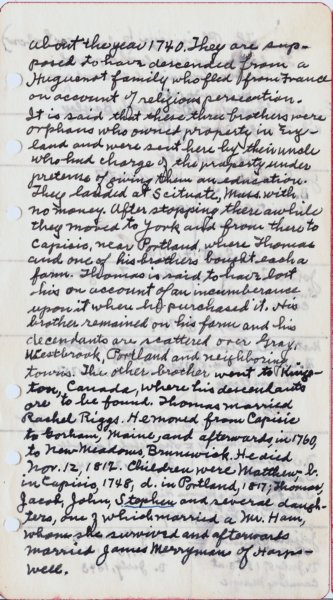 about the year 1740. They are sup-
posed to have descended from a
Huguenot family who fled from France
on account of religious persecution.
It is said that these three brothers were
orphans who owned property in Eng-
land and were sent here by their uncle
who had charge of the property under
pretense of giving them an education.
They landed at Scituate, Mass. with
no money. After stopping there awhile
they moved to York and from there to
Capisic, near Portland, where Thomas
and one of his brothers bought each a
farm. Thomas is said to have lost
his on account of an incumberance
upon it when he purchased it. His
brother remained on his farm and his
decendants are scattered over Gray,
Westbrook, Portland and neighboring
towns. The other brother went to Kings-
ton, Canada, where his descendants
are to be found. Thomas married
Rachel Riggs. He moved from Capisic
to Gorham, Maine, and afterwards in 1760,
to New Meadows Brunswick. He died
Nov. 12, 1812. Children were Matthew, b.
in Capisic, 1748, d. in Portland, 1817; Thomas,
Jacob, John, Stephen and several daugh-
ters, one of which married a Mr. Ham,
whom she survived and afterwards
married James Merryman of Harps-
well.